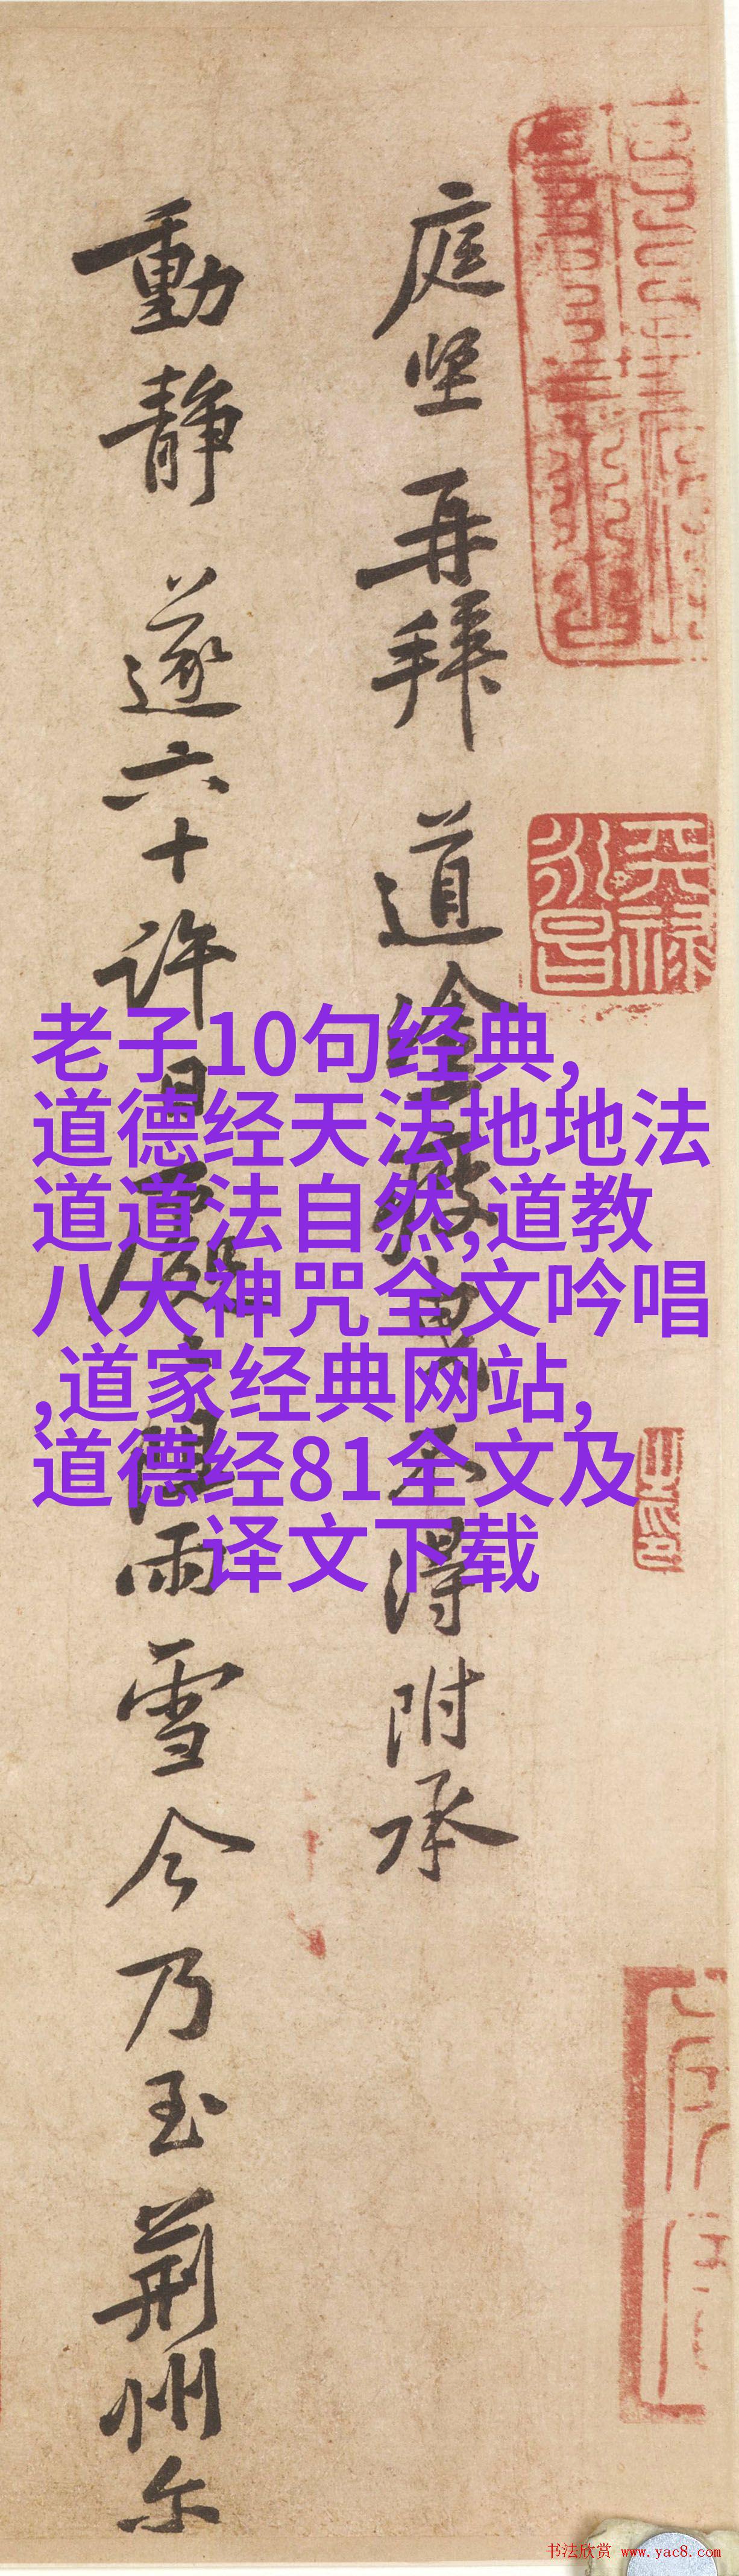 庭坚再拜道涂疲曳不得附承
動静遂六十许日
雨雪今乃至荆州尔
天禄
永昌
老子10句经典,
道德经天法地地法
道道法自然,道教
八大神咒全文吟唱
,道家经典网站,
道德经81全文及
译文下载
书法欣赏 www.yac8.com